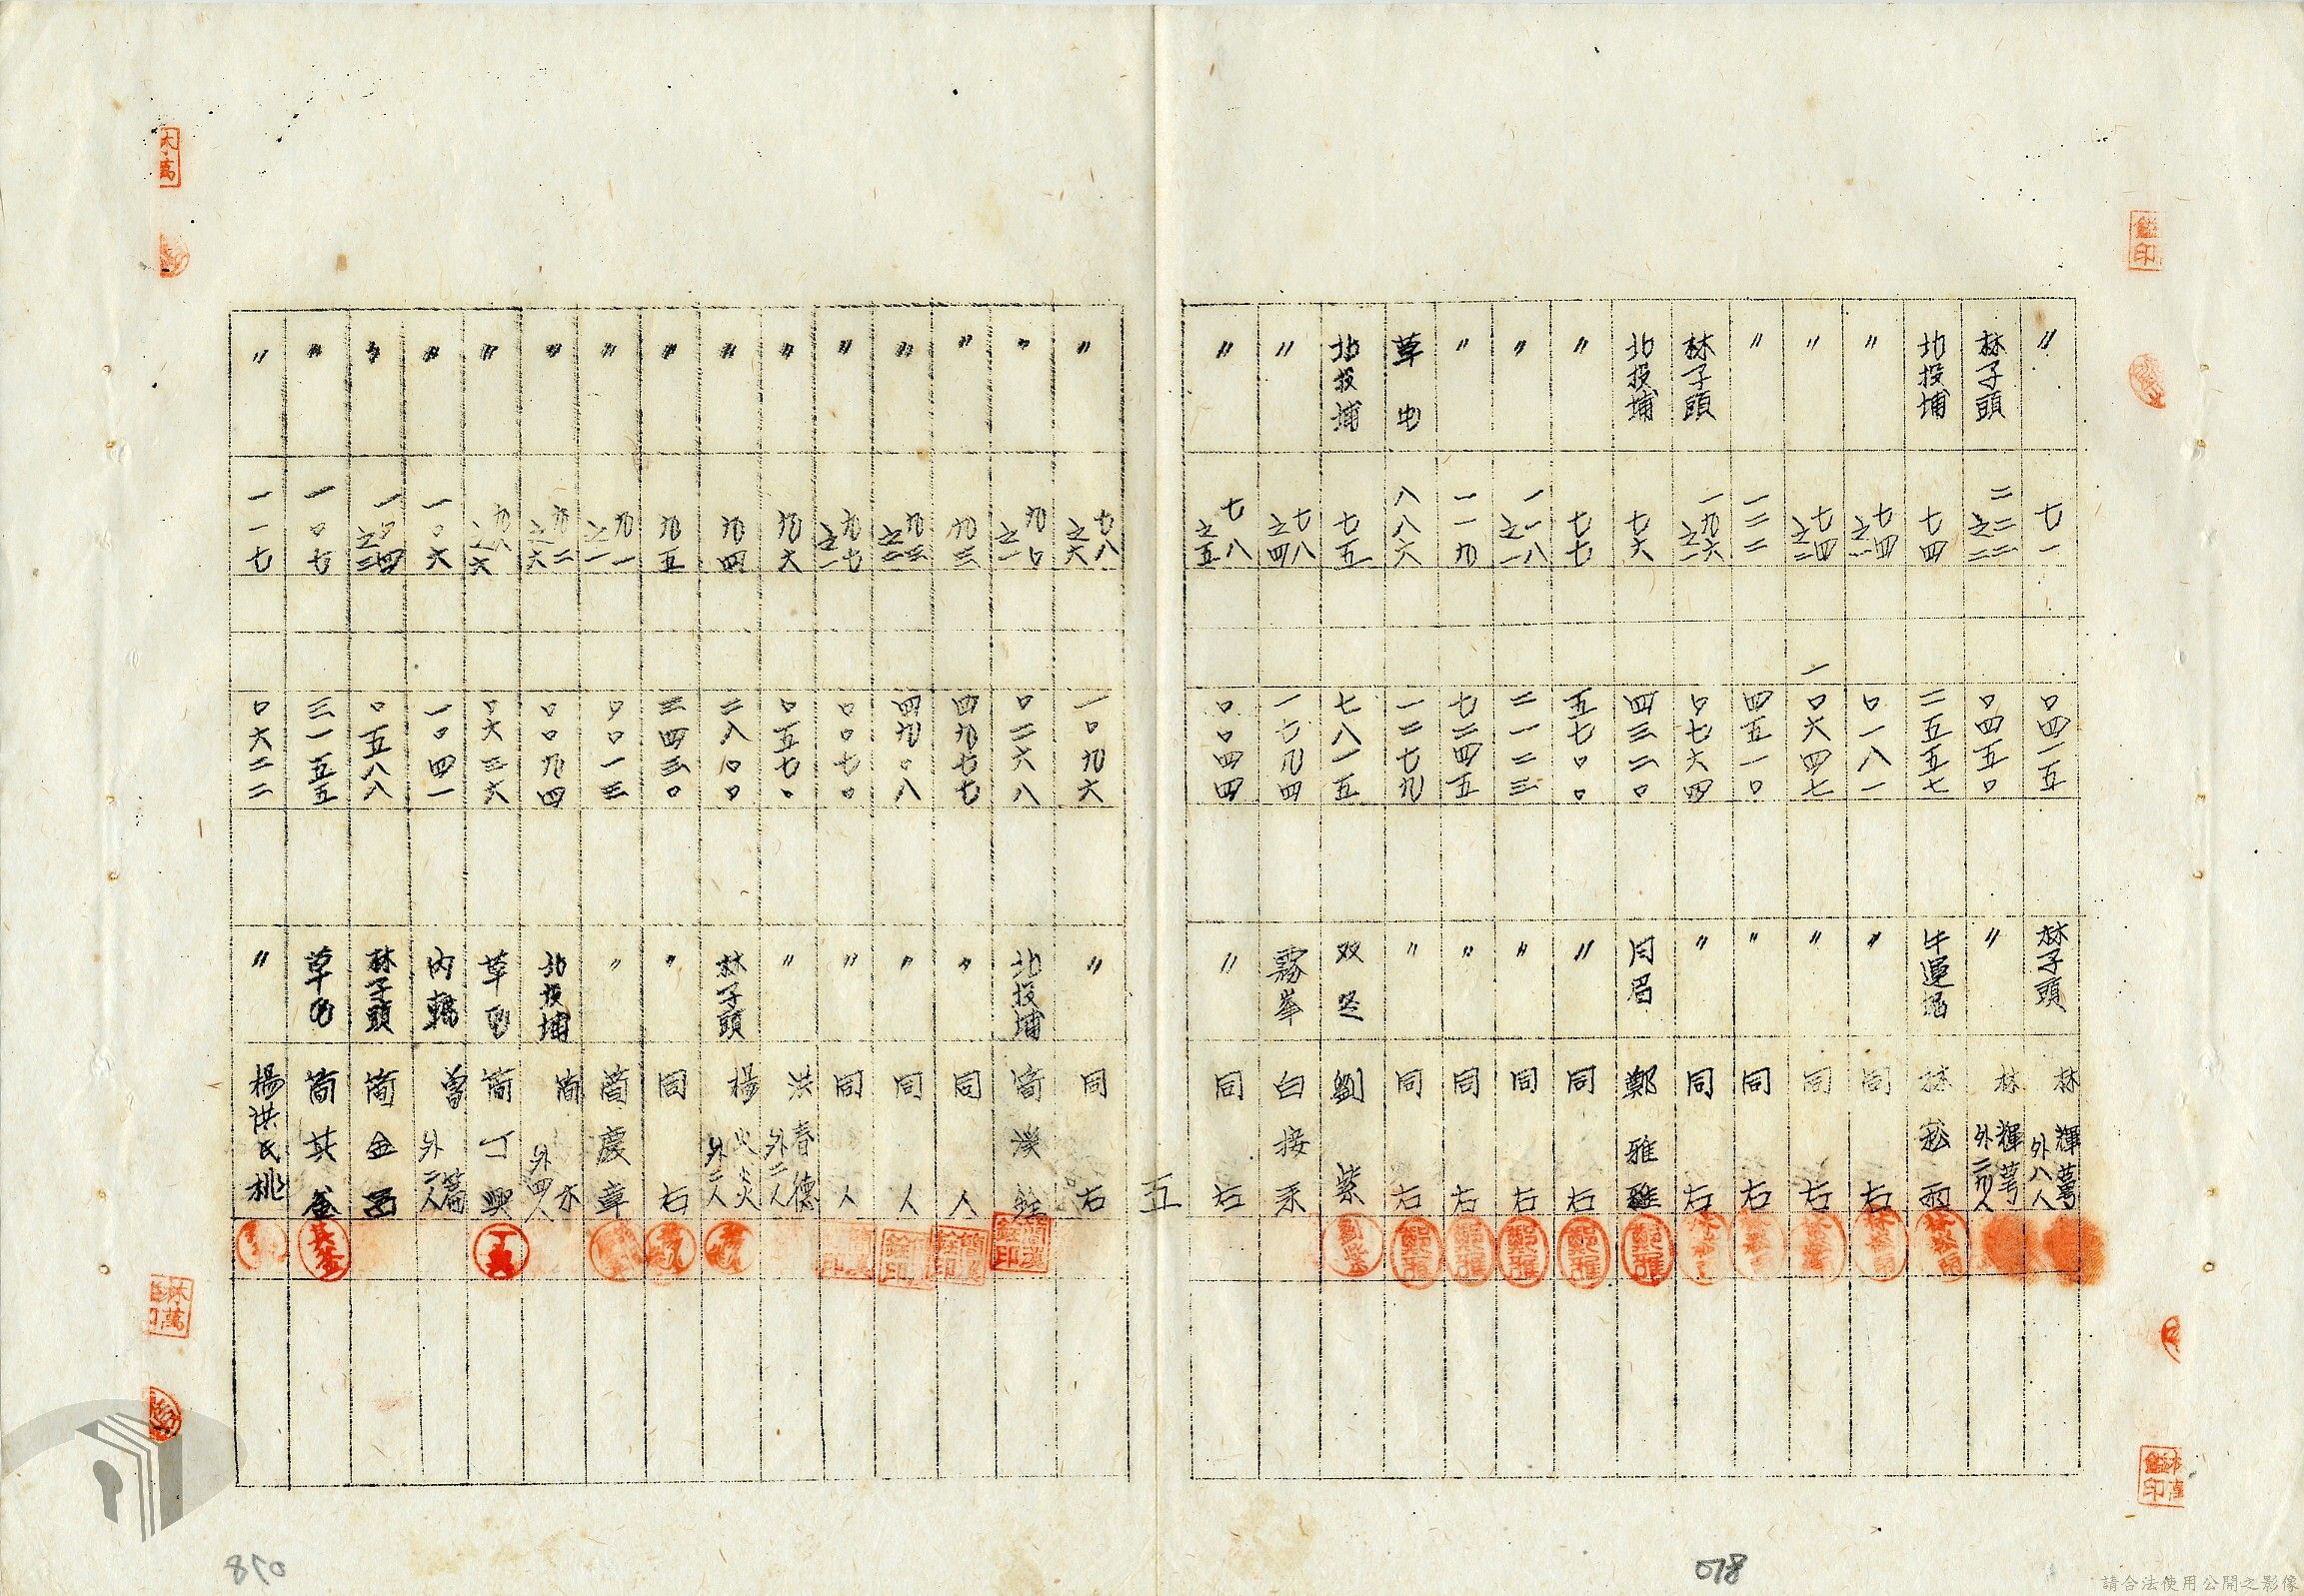 〃 七一 〇四一五 林子頭 林輝萬外八人
林子頭 二二二之二 〇四五〇 〃 林輝萬外二九人
北投埔 七四 二五五七 牛運堀 林崧雨
〃 七四之一 〇一八一 〃 同右
〃 七四之二 一〇六四七 〃 同右
〃 一二二 四五一〇 〃 同右
林子頭 一九六之一 〇七六四 〃 同右
北投埔 七六 四三二〇 月眉 鄭雅
〃 七七 五七〇〇 〃 同右
〃 一一八之一 二一二三 〃 同右
〃 一一九 七二四五 〃 同右
草屯 八八六 一二七九 〃 同右
北投埔 七五 七八一五 双 劉紫
〃 七八之四 一七九四 霧峯 白接禾
〃 七八之五 〇〇四四 〃 同右
五
〃 七八之六 一〇九六 〃 同右
〃 九〇之一 〇二六八 北投埔 簡漢銓
〃 九三 四九七七 〃 同人
〃 九三之二 四九〇八 〃 同人
〃 九七之一 〇〇七〇 〃 同人
〃 九六 〇五七〇 〃 洪春德外二人
〃 九四 二八〇〇 林子頭 楊火炎外二人
〃 九五 三四三〇 〃 同右
〃 九一之一 〇〇一三 〃 簡慶章
〃 九二之六 〇〇九四 北投埔 簡水外四人
〃 九八之六 〇六三六 草屯 簡丁興
〃 一〇六 一〇四一 內轆 曾篇外二人
〃 一〇四之三 〇五八八 林子頭 簡金
〃 一〇七 三一五五 草屯 簡其釜
〃 一一七 〇六二二 〃 楊洪氏桃
018
請合法使用公開之影像